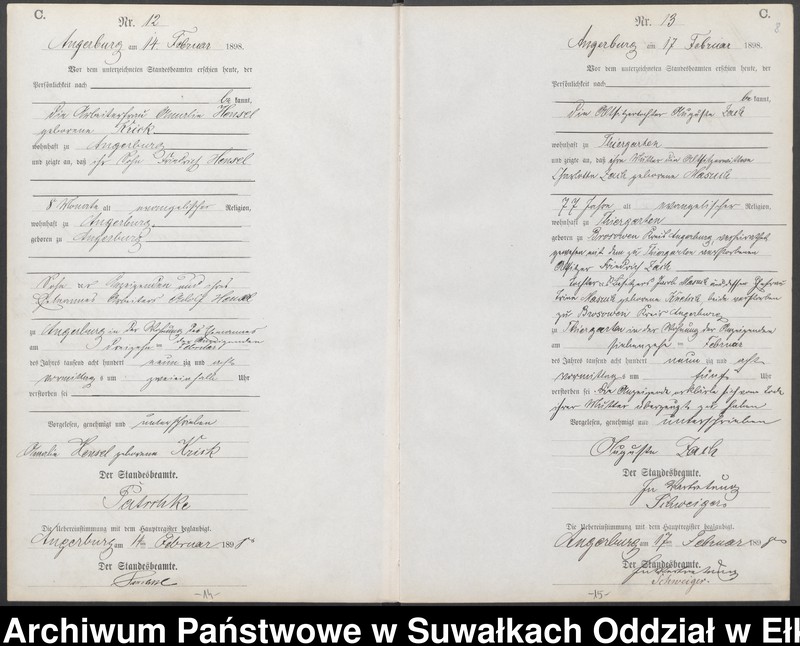 C.
Nr. 12
Angerburg am 14. Februar 1898.
Vor dem unterzeichneten Standesbeamten erschien heute, der
Persönlichkeit nach
be kannt,
die Arbeiterfrau Amalie Hensel
geborene Krick
wohnhaft zu Angerburg
und zeigte an, daß ihr Sohn Friedrich Hensel
8 Monate alt evangelischer Religion,
wohnhaft zu Angerburg
geboren zu Angerburg
Sohn der Anzeigenden und ihres
Ehemannes Arbeiters Hensel
zu Angerburg in der Wohnung des Ehemannes
der Anzeigenden
am Dreizehn ten Februar
des Jahres tausend acht hundert neun zig und acht
Vormittags um Uhr
verstorben sei
Vorgelesen, genehmigt und unterschrieben
Amalie Hensel geborene Krick
Der Standesbeamte.
Die Uebereinstimmung mit dem Hauptregister beglaubigt.
Angerburg am 14ten Februar 1898
Der Standesbeamte.
-14-
C.
8
Nr. 13
Angerburg am 17 Februar 1898.
Vor dem unterzeichneten Standesbeamten erschien heute, der
Persönlichkeit nach
be kannt,
die Altsitzertochter Auguste Zach
wohnhaft zu Thiergarten
und zeigte an, daß ihre Mutter die Altsitzerwittwe
Charlotte Zach geborene Masuch
77 Jahre alt evangelischer Religion,
wohnhaft zu Thiergarten
geboren zu Brosowen Kreis Angerburg, verheirathet
gewesen mit dem zu Thiergarten verstorbenen
Altsitzer Friedrich Zach
Tochter des Besitzers Masuch und dessen Ehefrau
Masuch geborene beide verstorben
zu Brosowen Kreis Angerburg
zu Thiergarten in der Wohnung der Anzeigenden
am siebenzehn ten Februar
des Jahres tausend acht hundert neun zig und acht
Vormittags um fünf Uhr
verstorben sei. Die Anzeigende erklärte sich vom Tode
ihrer Mutter überzeugt zu haben
Vorgelesen, genehmigt und unterschrieben
Auguste Zach
Der Standesbeamte.
In Vertretung
Schweiger.
Die Uebereinstimmung mit dem Hauptregister beglaubigt.
Angerburg am 17ten Februar 1898
Der Standesbeamte.
In Vertretung
Schweiger.
-15-
Archiwum Państwowe w Suwałkach Oddział w Ełk